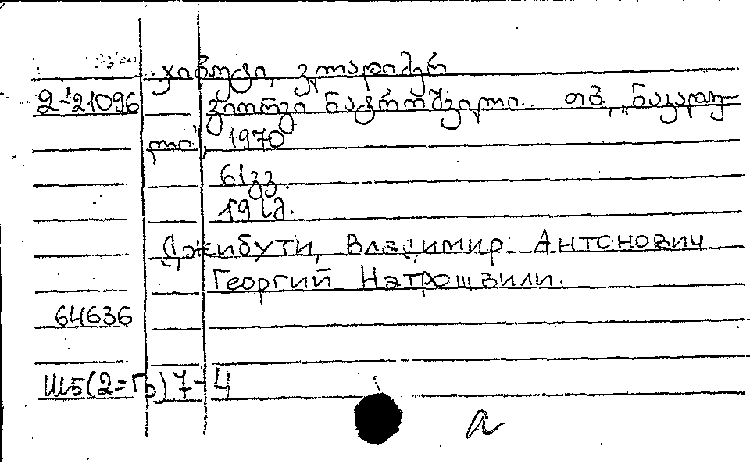 ჯიბუტი, ვლადიმერ
2-21096 გიორგი ნატროშვილი. თბ., „ნაკადუ-
ლი“, 1970
61გვ.
19 კ.
Джибути, Владимир Антонович
Георгий Натрошвили.
64636
Ш5(2=Гр)7-4
а